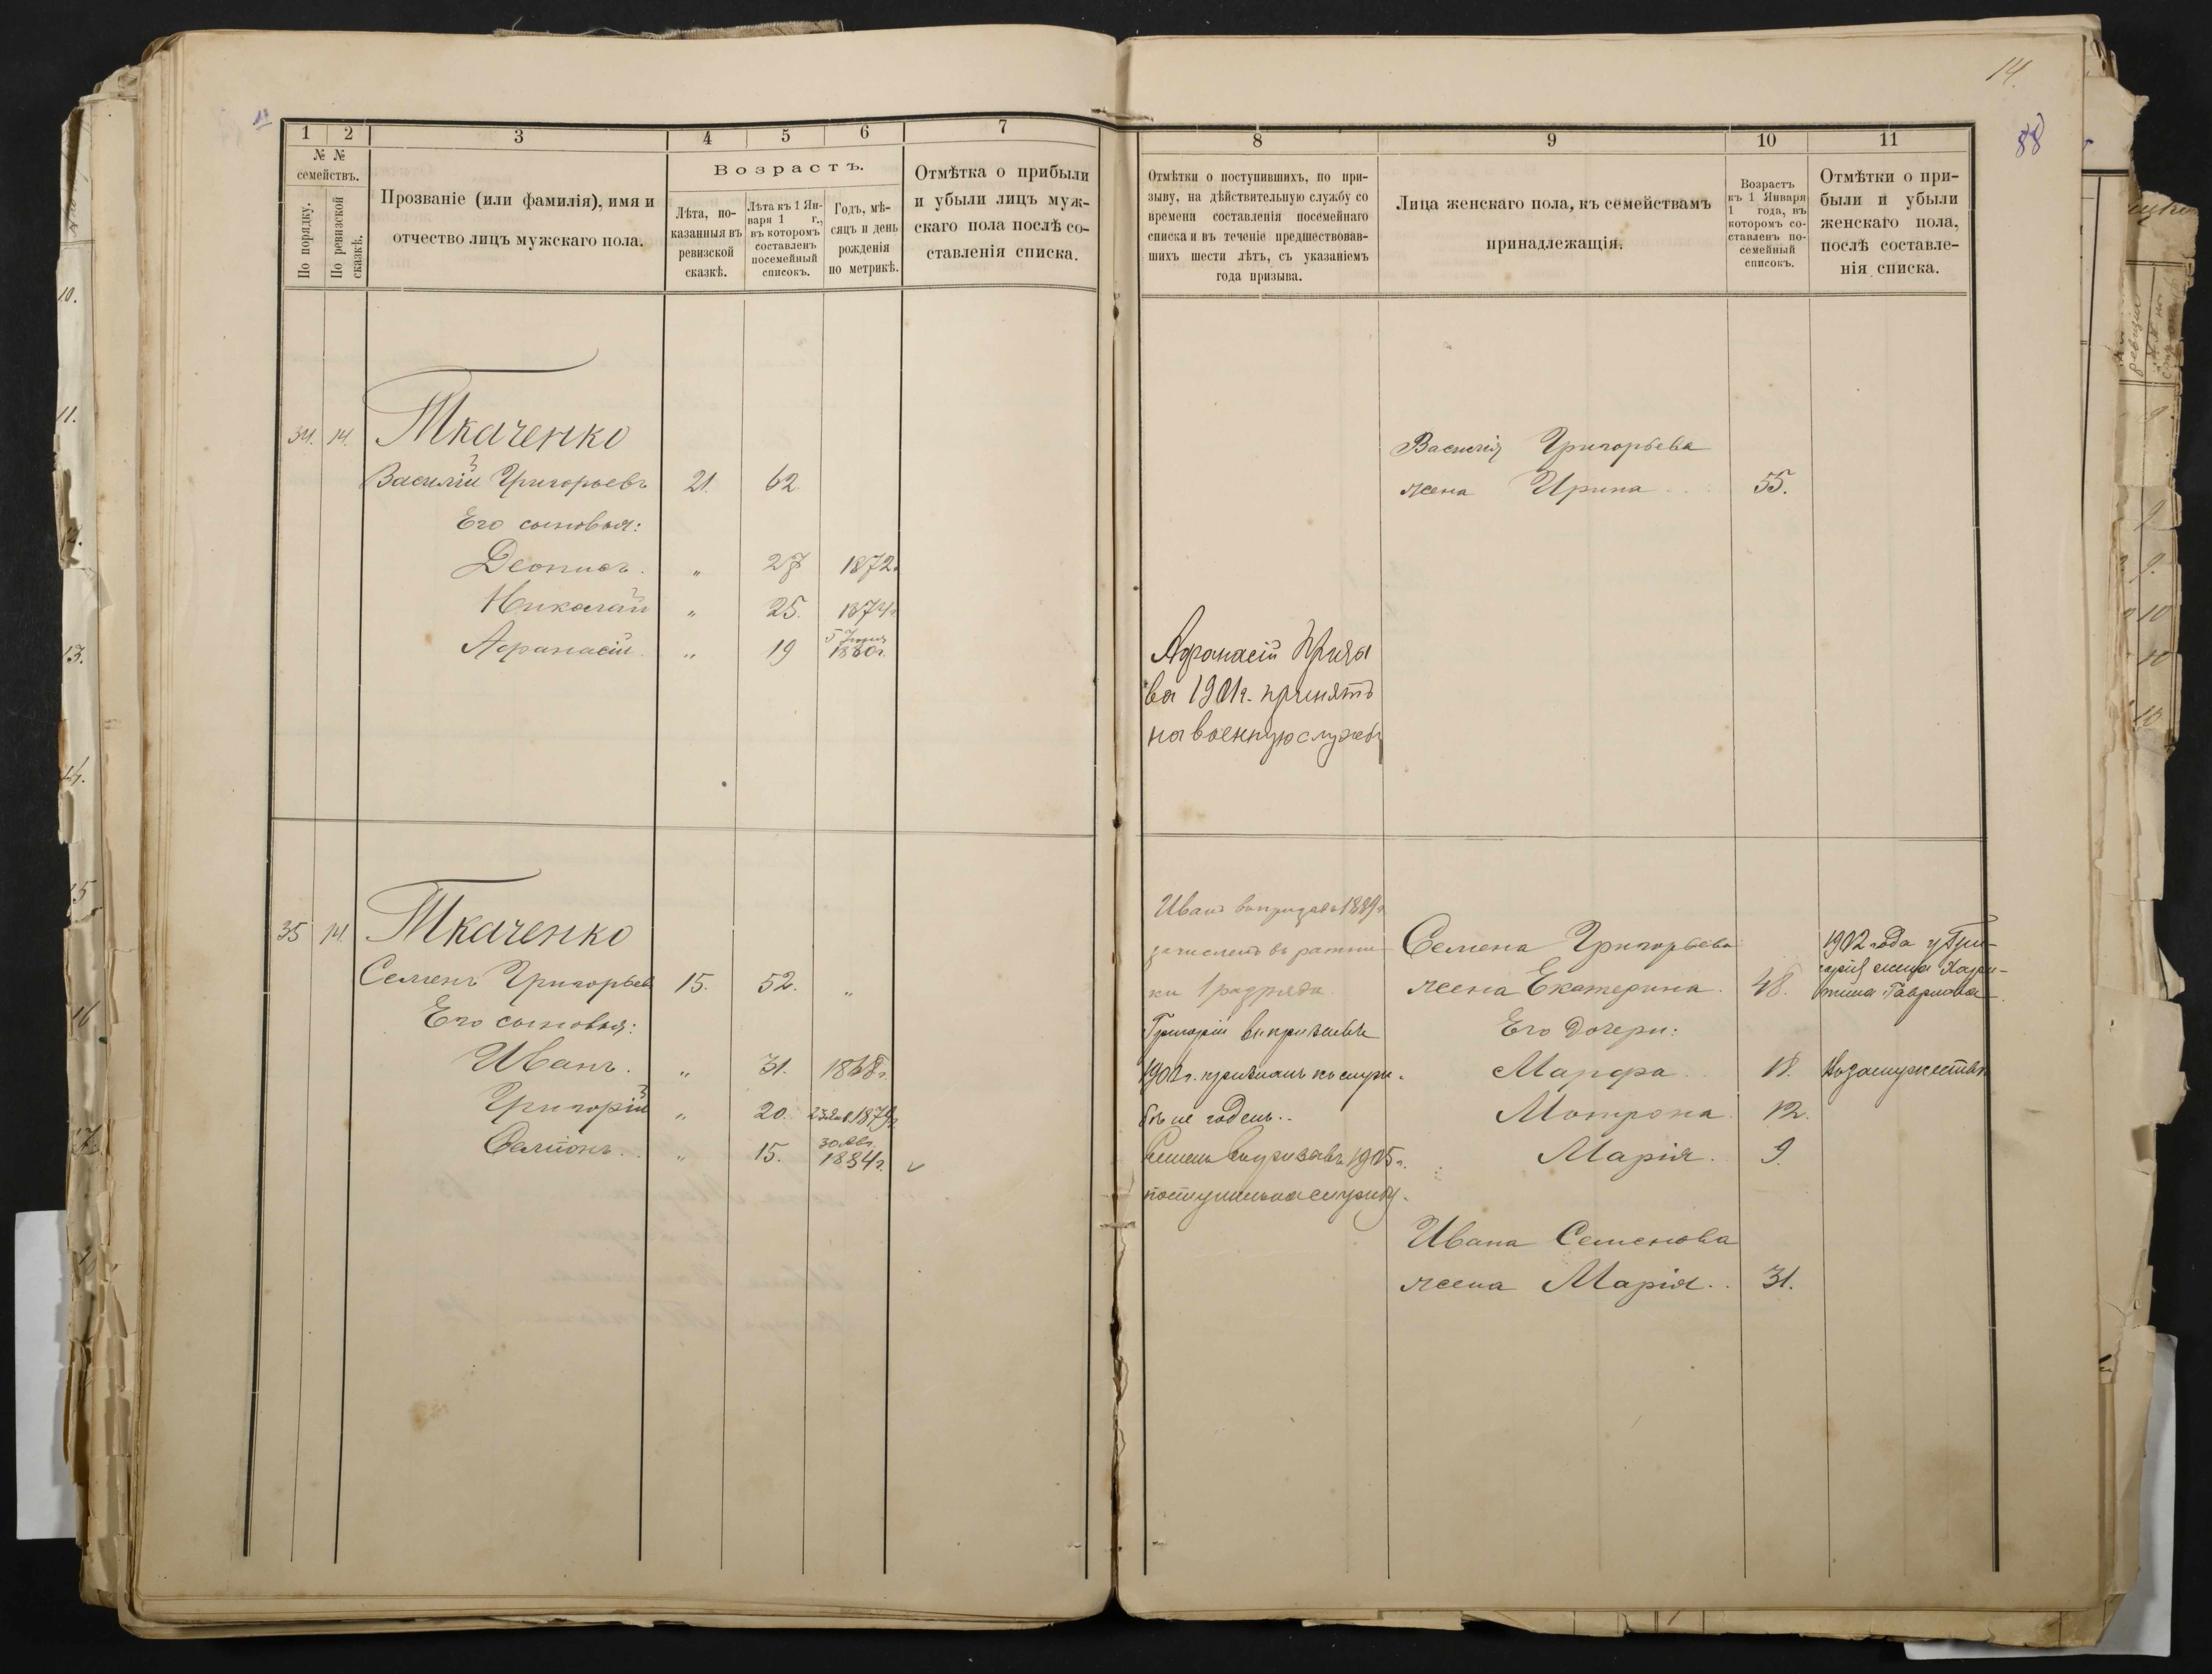 14.
88
1 2 3 4 5 6 7
№ №
семействъ.
По порядку.
По ревизской
сказкѣ.
Прозваніе (или фамилія), имя и
отчество лицъ мужскаго пола.
Возрастъ.
Лѣта, по-
казанныя въ
ревизской
сказкѣ.
Лѣта къ 1 Ян-
варя 1 г.,
въ которомъ
составленъ
посемейный
списокъ.
Годъ, мѣ-
сяцъ и день
рожденія
по метрикѣ.
Отмѣтка о прибыли
и убыли лицъ муж-
скаго пола послѣ со-
ставленія списка.
34. 14. Ткаченко
Василій Григорьевъ 21. 62.
Его сыновья:
Деонисъ. " 27 1872.
Николай " 25. 1874г.
5 Іюля
Афанасій. " 19 1880г.
35 14. Ткаченко
Семенъ Григорьев 15. 52. "
Его сыновья:
Иванъ. " 31. 1868г.
Григорій " 20. 1879г.
30 Авг.
" 15. 1884г.
8 9 10 11
Отмѣтки о поступившихъ, по при-
зыву, на дѣйствительную службу со
времени составленія посемейнаго
списка и въ теченіе предшествовав-
шихъ шести лѣтъ, съ указаніемъ
года призыва.
Лица женскаго пола, къ семействамъ
принадлежащія.
Возрастъ
къ 1 Января
1 года, въ
которомъ со-
ставленъ по-
семейный
списокъ.
Отмѣтки о при-
были и убыли
женскаго пола,
послѣ составле-
нія списка.
Василія Григорьева
жена Ирина 55.
Афанасій Призы
ва 1901г. принятъ
на военную службу
Иванъ въ призывъ 1889г
зачисленъ въ ратни-
ки 1 разряда
Григорій въ призывъ
1901г. признанъ къ служ-
бѣ не годенъ..
Семенъ въ призывъ 1905г.
поступилъ на службу.
Семена Григорьева
жена Екатерина. 48.
Его дочери:
Марфа. 18.
Мотрона. 12.
Марія. 9.
Ивана Семенова
жена Марія.. 31.
1902 года у Гри-
горія жена
Гаврилова
Въ замужествѣ